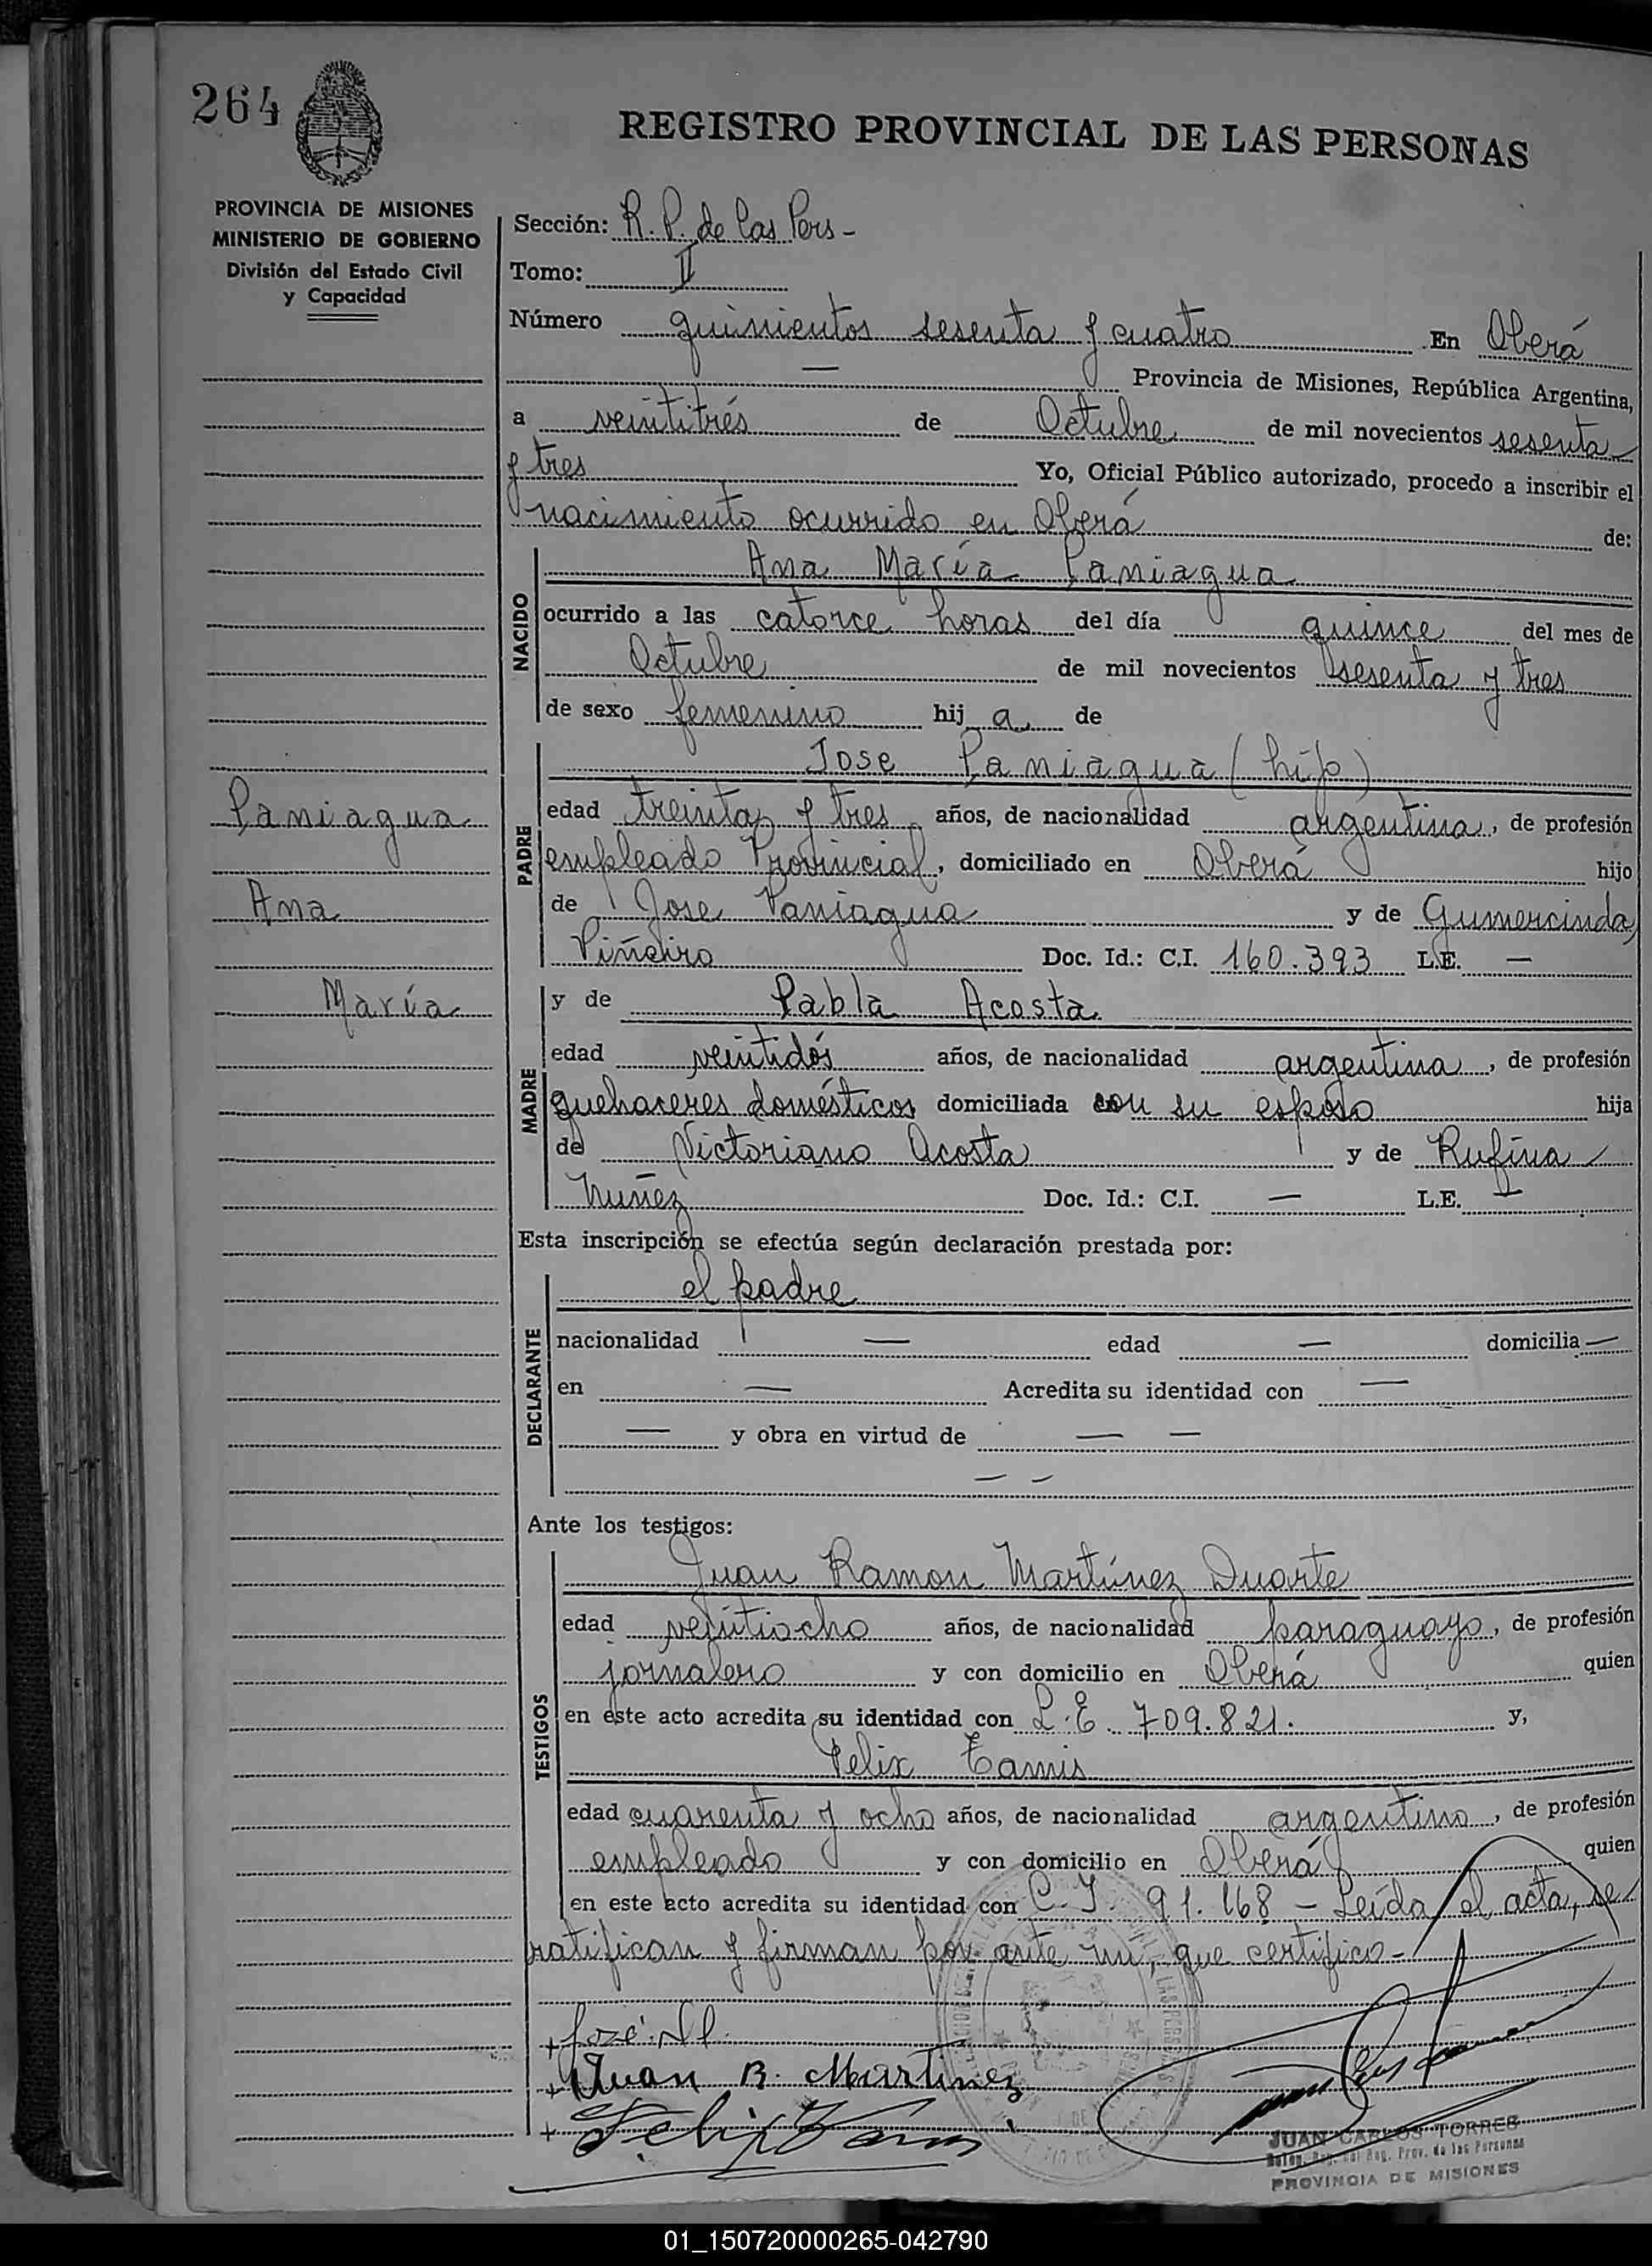 264
REGISTRO PROVINCIAL DE LAS PERSONAS
PROVINCIA DE MISIONES
MINISTERIO DE GOBIERNO
División del Estado Civil
y Capacidad
Sección: R. P. de las Pers -
Tomo: II
Número quinientos sesenta y cuatro En Oberá
— Provincia de Misiones, República Argentina,
a veintitrés de Octubre de mil novecientos sesenta
y tres Yo, Oficial Público autorizado, procedo a inscribir el
nacimiento ocurrido en Oberá de:
NACIDO
Ana María Paniagua
ocurrido a las catorce horas del día quince del mes de
Octubre de mil novecientos sesenta y tres
de sexo femenino hij a de
PADRE
Jose Paniagua (hijo)
edad treinta y tres años, de nacionalidad argentina, de profesión
empleado Provincial, domiciliado en Oberá hijo
de Jose Paniagua y de Gumercinda
Piñeiro Doc. Id.: C.I. 160.393 L.E. —
Paniagua
Ana
María
MADRE
y de Pabla Acosta
edad veintidós años, de nacionalidad argentina, de profesión
quehaceres domésticos domiciliada con su esposo hija
de Victoriano Acosta y de Rufina
Nuñez Doc. Id.: C.I. — L.E. —
Esta inscripción se efectúa según declaración prestada por:
DECLARANTE
el padre
nacionalidad — edad — domicilia —
en — Acredita su identidad con —
— y obra en virtud de — —
— —
Ante los testigos:
TESTIGOS
Juan Ramon Martínez Duarte
edad veintiocho años, de nacionalidad paraguayo, de profesión
jornalero y con domicilio en Oberá quien
en este acto acredita su identidad con L.E. 709.821. y,
Felix Tamis
edad cuarenta y ocho años, de nacionalidad argentino, de profesión
empleado y con domicilio en Oberá quien
en este acto acredita su identidad con C.I. 91.168 - Leída el acta, se
ratifican y firman por ante mi, que certifico -
+ José
+ Juan R. Martinez
+ Felix
JUAN CARLOS TORRES
Prov. de las Personas
PROVINCIA DE MISIONES
01_150720000265-042790